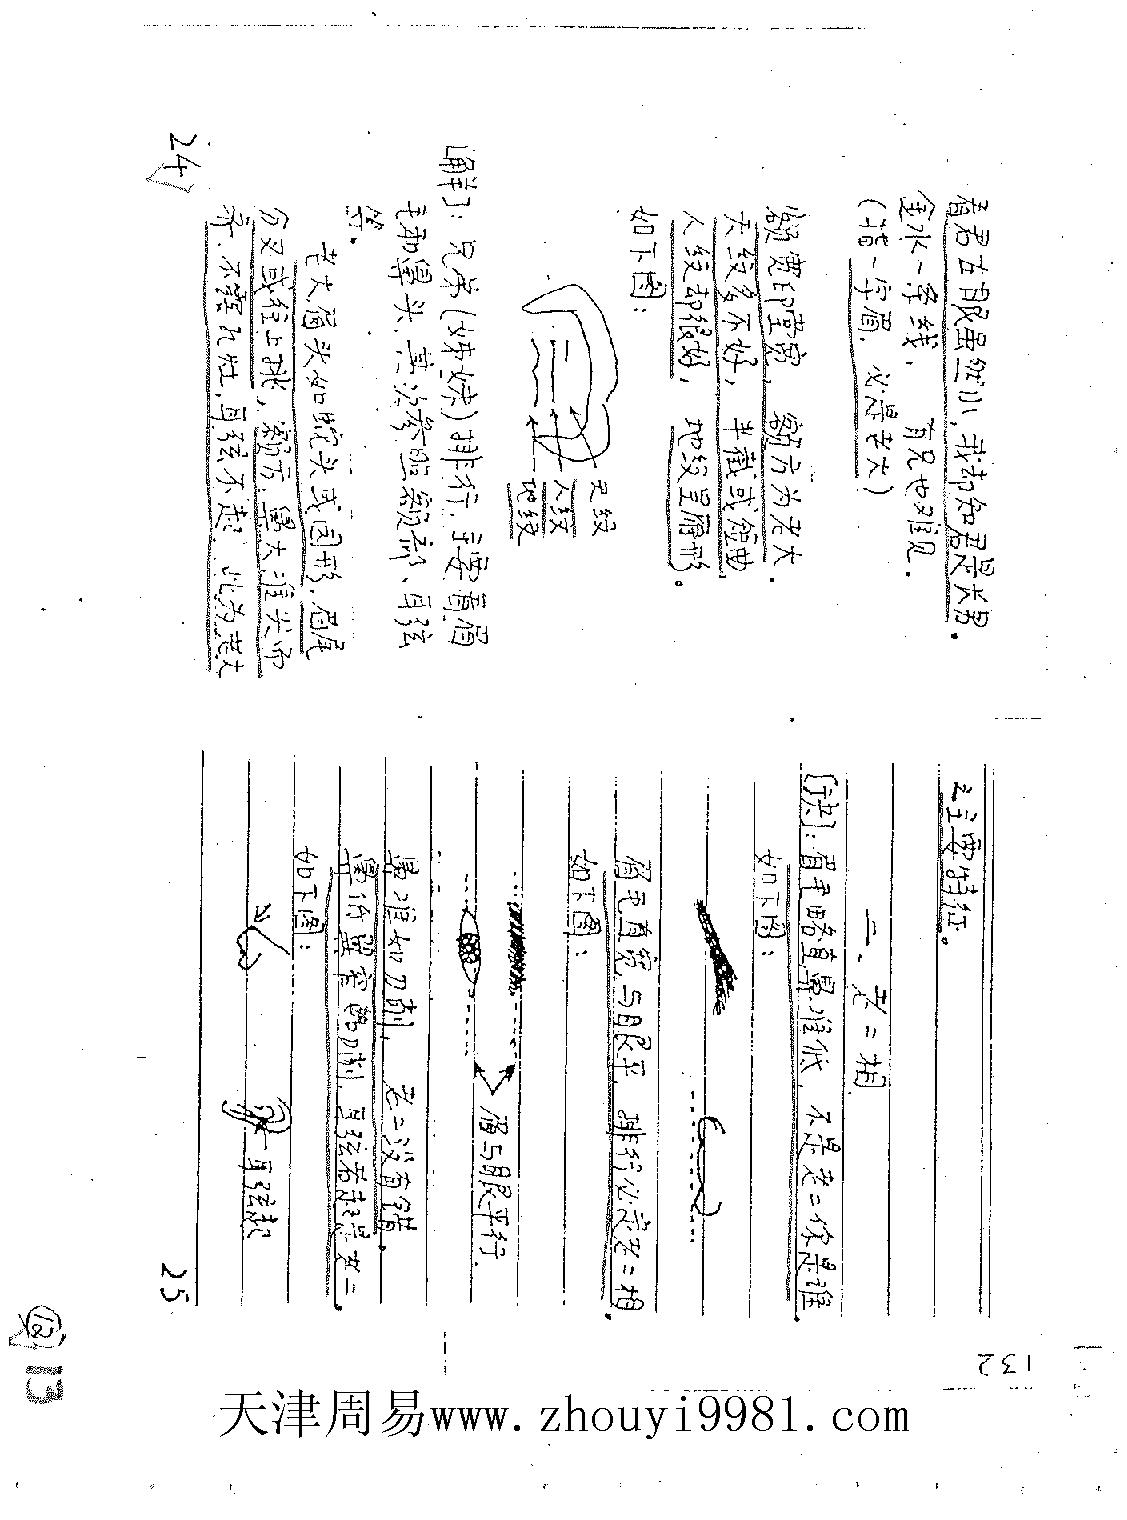 看君左眼虽然小,我却知君是长男.
金水一字线, 有兄也难见.
(指一字眉, 必是老大)
额宽印堂宽, 额方为老大.
天纹多不好, 半截或短曲
人纹却很好, 地纹呈扁形.
如下图:
天纹
人纹
地纹
[解]: 兄弟(姊妹)排行, 主要看眉
毛和鼻头, 其次参照额部、耳弦
等.
老大眉头如蛇头或园形, 眉尾
分叉或往上挑, 额方, 鼻大准头而
齐, 不露孔灶, 耳弦不起, 此为老大
24
之主要特征。
二、老二相
[诀]: 眉毛略直鼻准低, 不是老二你是谁
如下图:
眉毛直宽与眼平, 排行必定老二相.
如下图:
眉与眼平行.
鼻准如刀削, 老二没有错.
如下图:
耳弦起
25
132
13
天津周易www.zhouyi9981.com